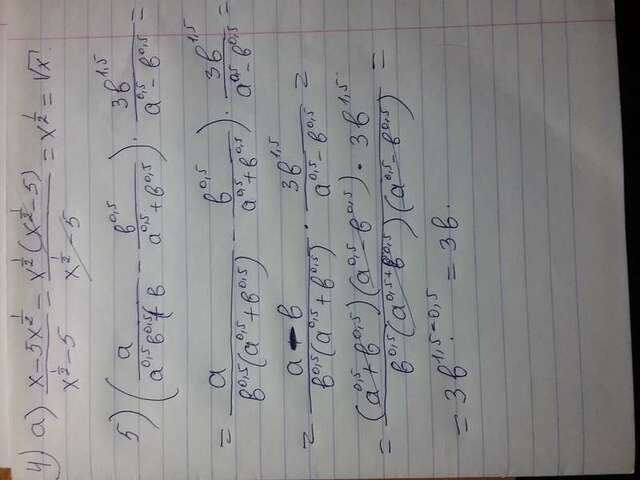 4) а) (x - 5x^(1/2))/(x^(1/2) - 5) = (x^(1/2)(x^(1/2) - 5))/(x^(1/2) - 5) = x^(1/2) = √x.
5) (a/(a^0,5 в^0,5 + в) - в^0,5/(a^0,5 + в^0,5)) · 3в^1,5/(a^0,5 - в^0,5) =
= a/(в^0,5(a^0,5 + в^0,5)) - в^0,5/(a^0,5 + в^0,5)) · 3в^1,5/(a^0,5 - в^0,5) =
= (a - в)/(в^0,5(a^0,5 + в^0,5)) · 3в^1,5/(a^0,5 - в^0,5) =
= ((a^0,5 + в^0,5)(a^0,5 - в^0,5) · 3в^1,5)/(в^0,5(a^0,5 + в^0,5)(a^0,5 - в^0,5)) =
= 3в^(1,5-0,5) = 3в.